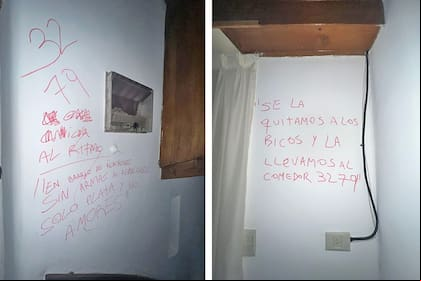 32
79
AL RITMO
//EN BARRIO DE
SIN ARMAS
SOLO PLATA Y NO
AMORES
"SE LA
QUITAMOS A LOS
RICOS Y LA
LLEVAMOS AL
COMEDOR 3279"